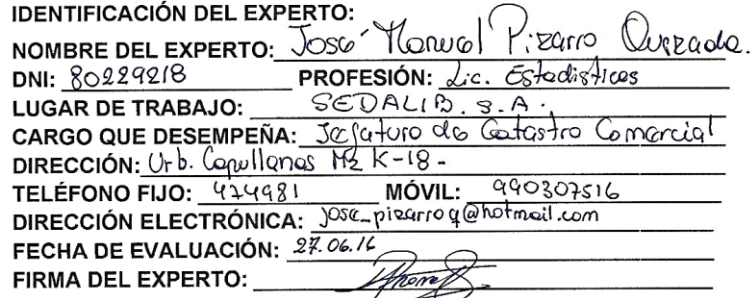 IDENTIFICACIÓN DEL EXPERTO:
NOMBRE DEL EXPERTO: José Manuel Pizarro Quezada.
DNI: 80229218 PROFESIÓN: Lic. Estadísticas
LUGAR DE TRABAJO: SEDALIB. S.A.
CARGO QUE DESEMPEÑA: Jefatura de Catastro Comercial
DIRECCIÓN: Urb. Capullanas Mz K-18-
TELÉFONO FIJO: 474981 MÓVIL: 990307516
DIRECCIÓN ELECTRÓNICA: jose_pizarroq@hotmail.com
FECHA DE EVALUACIÓN: 27.06.16
FIRMA DEL EXPERTO: